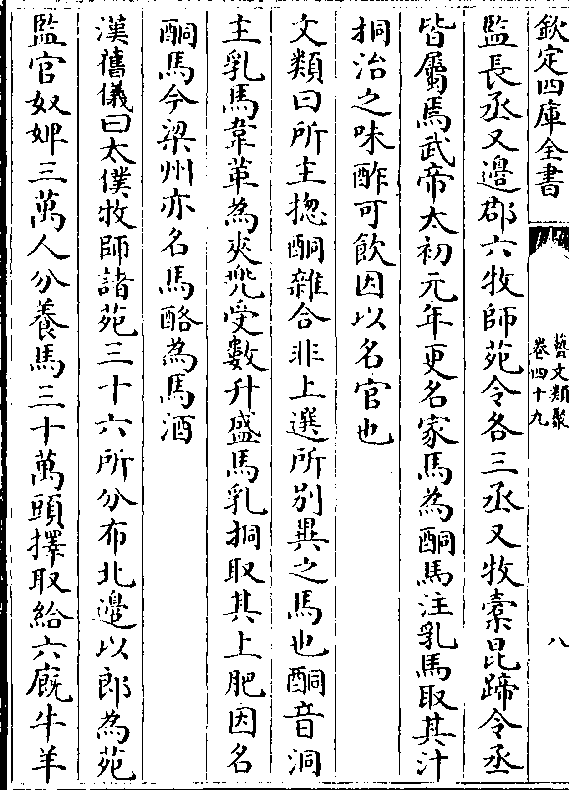 欽定四庫全書
藝文類聚
卷四十九
八
監長丞又邊郡六牧師苑令各三丞又牧槖昆蹄令丞
皆屬馬武帝太初元年更名家馬為酮馬注乳馬取其汁
挏治之味酢可飲因以名官也
文類曰所主揔酮雜合非上選所別異之馬也酮音洞
主乳馬韋革為夾兜受數升盛馬乳挏取其上肥因名
酮馬今梁州亦名馬酪為馬酒
漢舊儀曰太僕牧師諸苑三十六所分布北邊以郎為苑
監官奴婢三萬人分養馬三十萬頭擇取給六廐牛羊